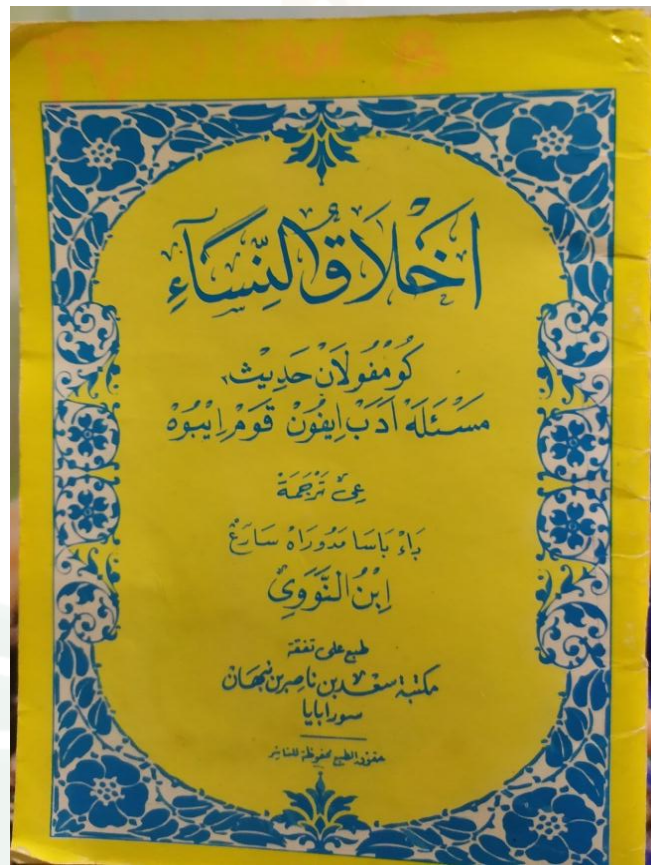 اَخْلَاقُ النِّسَآءِ
كُوْمْفُولَانْ حَدِيْث٢
مَسْئَلَهْ اَدَبْ اِيفُوْنْ قَوْمْ اِيْبُوْهْ
تَرْجَمَةْ
بَاسَا مَدُوْرَاهْ سَارَڠْ
اِبْنُ النَّوَوِيْ
طبع على نفقة
مكتبة سعد بن ناصر بن نبهان
سورابايا
حقوق الطبع محفوظة للناشر